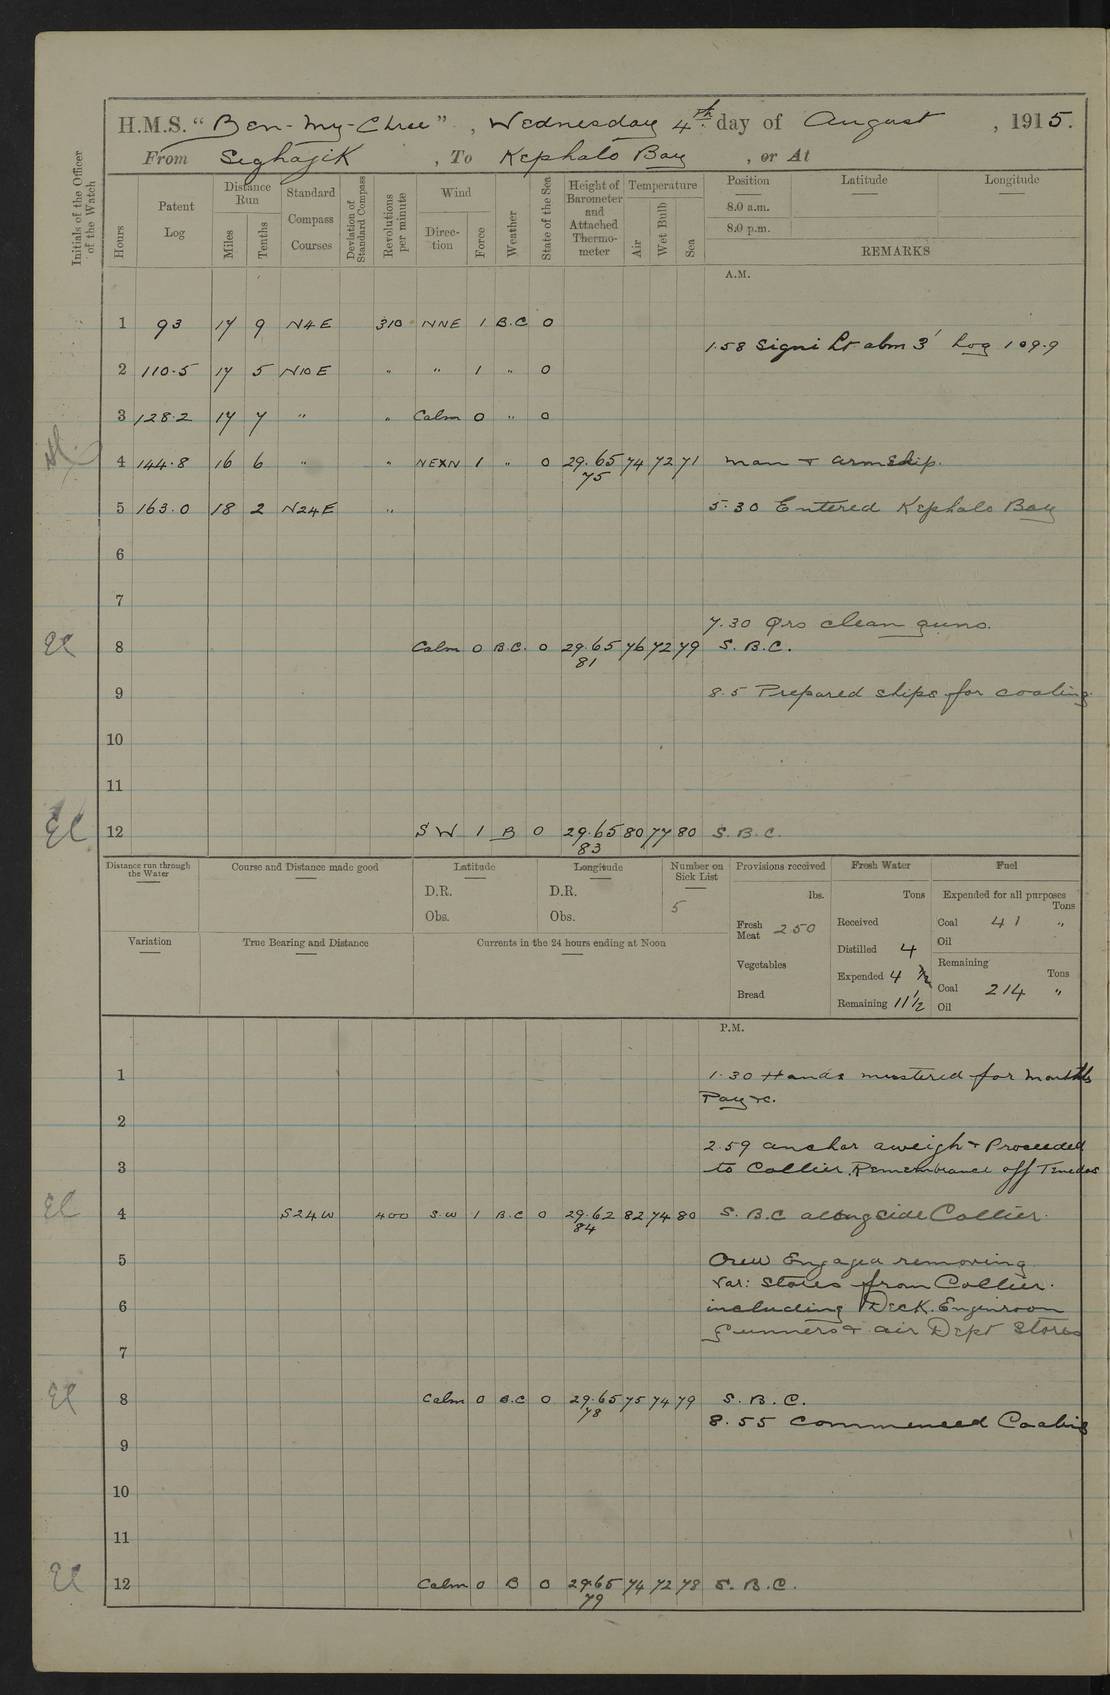 H.M.S. "Ben-my-Chree", Wednesday 4th day of August, 1915.
From Seghajik, To Kephalo Bay, or At
Initials of the Officer of the Watch
Hours
Patent Log
Distance Run
Miles
Tenths
Standard Compass Courses
Deviation of Standard Compass
Revolutions per minute
Wind
Direction
Force
Weather
State of the Sea
Height of Barometer and Attached Thermometer
Temperature
Air
Wet Bulb
Sea
Position Latitude Longitude
8.0 a.m.
8.0 p.m.
REMARKS
A.M.
1 93 17 9 N4E 310 NNE 1 B.C 0
1.58 Signi Lt abm 3' Log 109.9
2 110.5 17 5 N10E " " 1 " 0
3 128.2 17 7 " " Calm 0 " 0
4 144.8 16 6 " " NEXN 1 " 0 29.65 74 72 71 man & arm ship.
75
5 163.0 18 2 N24E " 5.30 Entered Kephalo Bay
6
7
7.30 Qrs clean guns.
8 Calm 0 B.C. 0 29.65 76 72 79 S.B.C.
81
9 8.5 Prepared ships for coaling
10
11
12 SW 1 B 0 29.65 80 77 80 S.B.C.
83
Distance run through the Water
Course and Distance made good
Latitude
D.R.
Obs.
Longitude
D.R.
Obs.
Number on Sick List
5
Variation
True Bearing and Distance
Currents in the 24 hours ending at Noon
Provisions received
lbs.
Fresh Meat 250
Vegetables
Bread
Fresh Water
Tons
Received
Distilled 4
Expended 4 1/2
Remaining 11 1/2
Fuel
Expended for all purposes
Tons
Coal 41 "
Oil
Remaining
Tons
Coal 214 "
Oil
P.M.
1 1.30 Hands mustered for months
Pay &c.
2
2.59 anchor aweigh & Proceeded
3 to Collier Remembrance off Tenedos
4 S24W 400 S.W 1 B.C 0 29.62 82 74 80 S.B.C alongside Collier.
84
5 Crew Engaged removing
Var: Stores from Collier.
6 including Deck. Enginroom
Gunners & air Dept Stores
7
8 Calm 0 B.C 0 29.65 75 74 79 S.B.C.
78
8.55 Commenced Coaling
9
10
11
12 Calm 0 B 0 29.65 74 72 78 S.B.C.
79